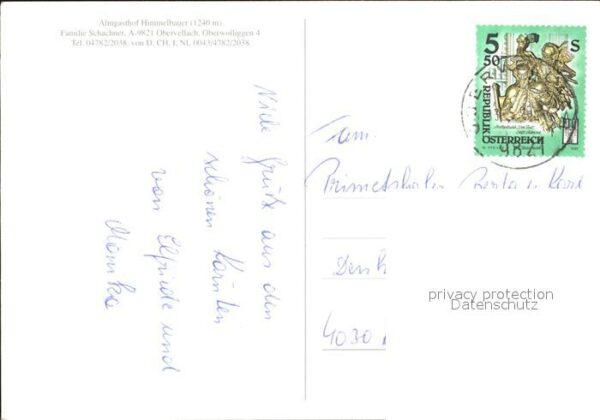 Almgasthof Himmelbauer (1240 m)
Familie Schachner, A-9821 Obervellach, Oberwolliggen 4
Tel. 04782/2038, von D, CH, I, NL 0043/4782/2038
Viele Grüße aus dem
schönen Kärnten
von Elfriede und
Monika
Fam.
4030
5
50
S
REPUBLIK
ÖSTERREICH
9821
privacy protection
Datenschutz